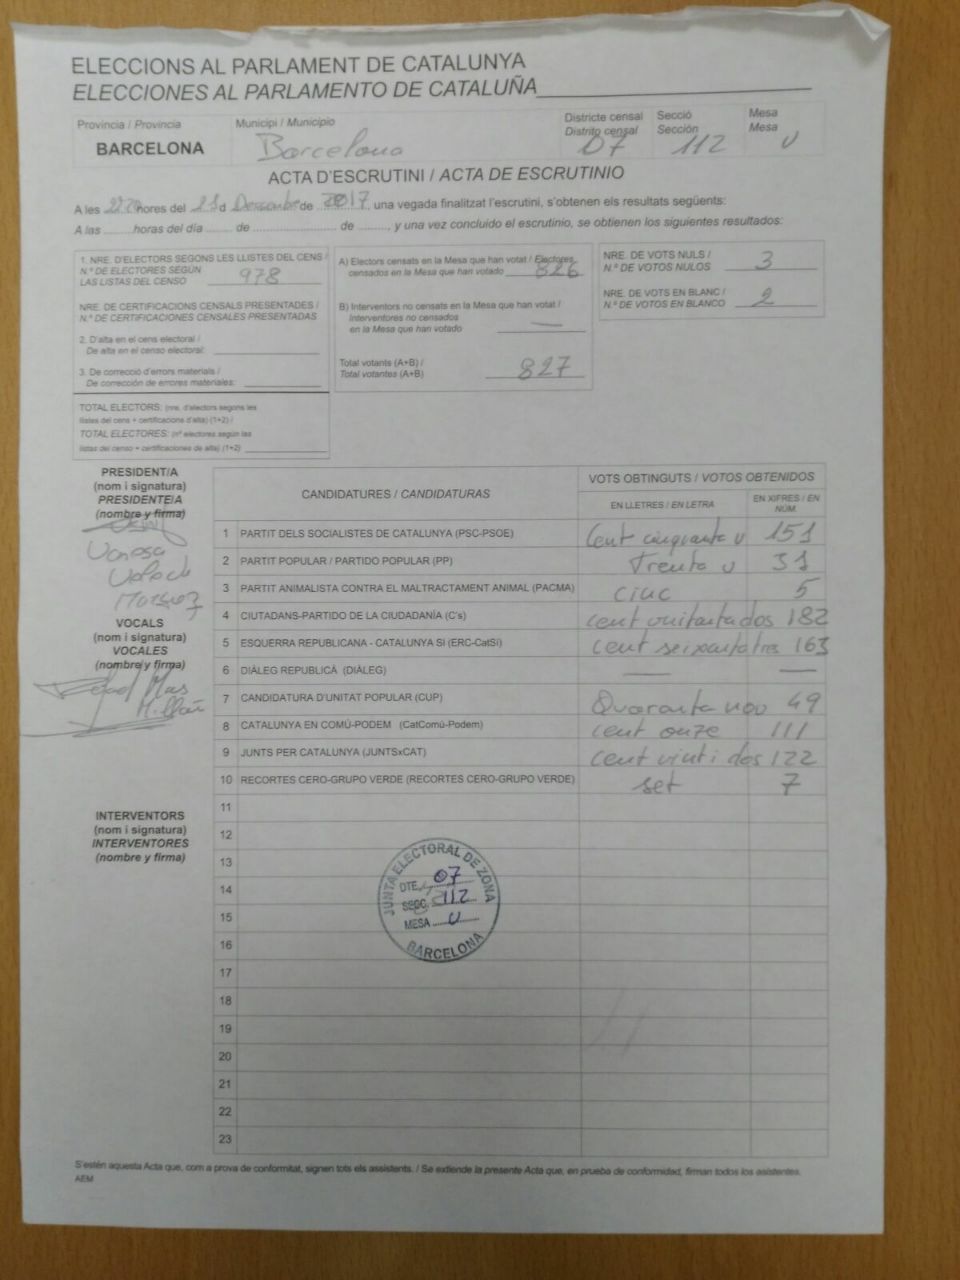 ELECCIONS AL PARLAMENT DE CATALUNYA
ELECCIONES AL PARLAMENTO DE CATALUÑA
Provincia / Provincia
BARCELONA
Municipi / Municipio
Barcelona
Districte censal
Distrito censal
07
Secció
Sección
112
Mesa
Mesa
U
ACTA D'ESCRUTINI / ACTA DE ESCRUTINIO
A les hores del 21 d Desembre de 2017, una vegada finalitzat l'escrutini, s'obtenen els resultats següents:
A las horas del día de de , y una vez concluido el escrutinio, se obtienen los siguientes resultados:
1. NRE. D'ELECTORS SEGONS LES LLISTES DEL CENS /
N.º DE ELECTORES SEGÚN
LAS LISTAS DEL CENSO 978
NRE. DE CERTIFICACIONS CENSALS PRESENTADES /
N.º DE CERTIFICACIONES CENSALES PRESENTADAS
2. D'alta en el cens electoral /
De alta en el censo electoral:
3. De correcció d'errors materials /
De corrección de errores materiales:
TOTAL ELECTORS: (nre. d'electors segons les
llistes del cens + certificacions d'alta) (1+2) /
TOTAL ELECTORES: (nº electores según las
listas del censo + certificaciones de alta) (1+2)
A) Electors censats en la Mesa que han votat / Electores
censados en la Mesa que han votado 826
B) Interventors no censats en la Mesa que han votat /
Interventores no censados
en la Mesa que han votado —
Total votants (A+B) /
Total votantes (A+B) 827
NRE. DE VOTS NULS /
N.º DE VOTOS NULOS 3
NRE. DE VOTS EN BLANC /
N.º DE VOTOS EN BLANCO 2
PRESIDENT/A
(nom i signatura)
PRESIDENTE/A
(nombre y firma)
Vanesa
VOCALS
(nom i signatura)
VOCALES
(nombre y firma)
Rafael Mas
Millán
INTERVENTORS
(nom i signatura)
INTERVENTORES
(nombre y firma)
CANDIDATURES / CANDIDATURAS
VOTS OBTINGUTS / VOTOS OBTENIDOS
EN LLETRES / EN LETRA
EN XIFRES / EN NÚM.
1 PARTIT DELS SOCIALISTES DE CATALUNYA (PSC-PSOE) Cent cinquanta u 151
2 PARTIT POPULAR / PARTIDO POPULAR (PP) Trenta u 31
3 PARTIT ANIMALISTA CONTRA EL MALTRACTAMENT ANIMAL (PACMA) cinc 5
4 CIUTADANS-PARTIDO DE LA CIUDADANÍA (C's) cent vuitanta dos 182
5 ESQUERRA REPUBLICANA - CATALUNYA SI (ERC-CatSí) cent seixanta tres 163
6 DIÀLEG REPUBLICÀ (DIÀLEG) — —
7 CANDIDATURA D'UNITAT POPULAR (CUP) Quaranta nou 49
8 CATALUNYA EN COMÚ-PODEM (CatComú-Podem) cent onze 111
9 JUNTS PER CATALUNYA (JUNTSxCAT) cent vint i dos 122
10 RECORTES CERO-GRUPO VERDE (RECORTES CERO-GRUPO VERDE) set 7
11
12
13
14
15
16
17
18
19
20
21
22
23
JUNTA ELECTORAL DE ZONA
DTE. 07
SECC. 112
MESA U
BARCELONA
S'estén aquesta Acta que, com a prova de conformitat, signen tots els assistents. / Se extiende la presente Acta que, en prueba de conformidad, firman todos los asistentes.
AEM